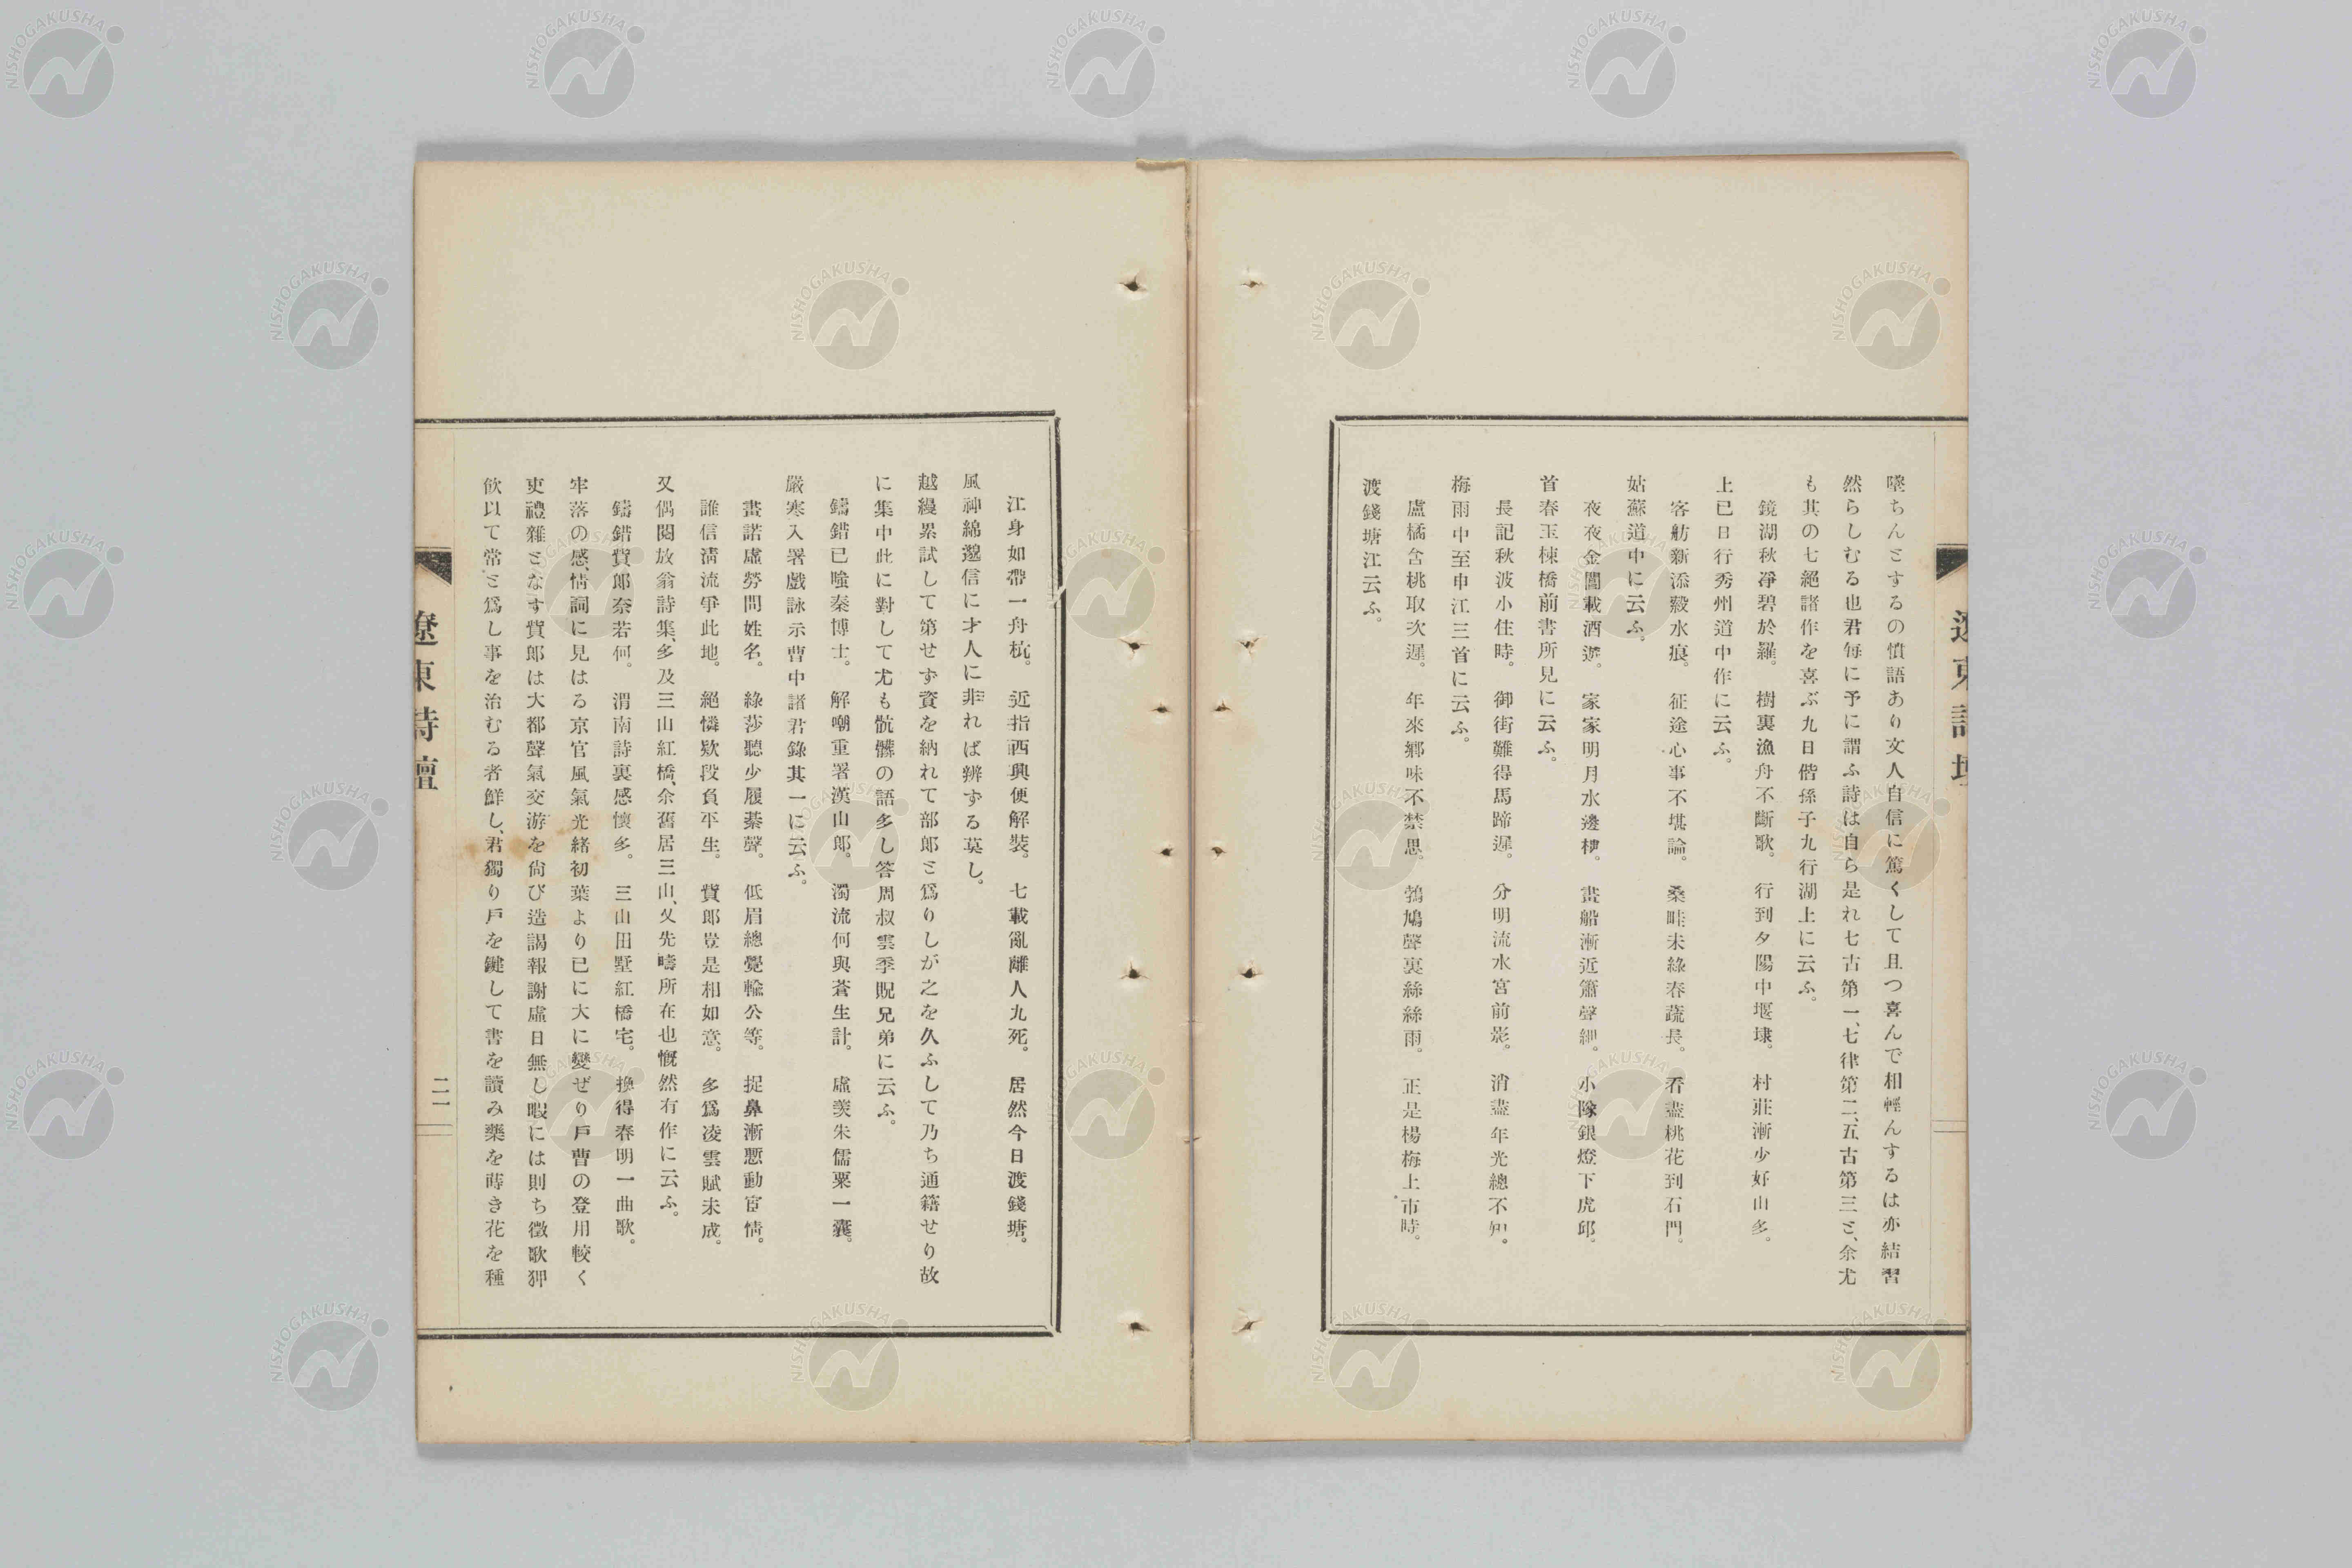 墜ちんとするの憤語あり文人自信に篤くして且つ喜んで相輕んするは亦結習
然らしむる也君毎に予に謂ふ詩は自ら是れ七古第一、七律第二、五古第三と、余尤
も其の七絕諸作を喜ぶ九日偕孫子九行湖上に云ふ。
鏡湖秋淨碧於羅。樹裏漁舟不斷歌。行到夕陽中堰埭。村莊漸少好山多。
上已日行秀州道中作に云ふ。
客舫新添縠水痕。征途心事不堪論。桑畦未綠春蔬長。看盡桃花到石門。
姑蘇道中に云ふ。
夜夜金閶載酒遊。家家明月水邊樓。畫船漸近簫聲細。小隊銀燈下虎邱。
首春玉棟橋前書所見に云ふ。
長記秋波小住時。御街難得馬蹄遲。分明流水宮前影。消盡年光總不知。
梅雨中至申江三首に云ふ。
盧橘含桃取次遲。年來鄉味不禁思。鵓鳩聲裏絲絲雨。正是楊梅上市時。
渡錢塘江云ふ。
遼東詩壇
江身如帶一舟杭。近指西興便解裝。七載亂離人九死。居然今日渡錢塘。
風神綿邈信に才人に非れば辨ずる莫し。
越縵累試して第せず資を納れて部郎と爲りしが之を久ふして乃ち通籍せり故
に集中此に對して尤も骯髒の語多し答周叔雲季貺兄弟に云ふ。
鑄錯已嗤秦博士。解嘲重署漢山郎。濁流何與蒼生計。虛羨朱儒粟一囊。
嚴寒入署戲詠示曹中諸君錄其一に云ふ。
畫諾虛勞問姓名。綠莎聽少履綦聲。低眉總覺輸公等。捉鼻漸慙動宦情。
誰信清流爭此地。絕憐欵段負平生。貲郎豈是相如意。多爲凌雲賦未成。
又偶閱放翁詩集、多及三山紅橋、余舊居三山、又先疇所在也慨然有作に云ふ。
鑄錯貲郎奈若何。渭南詩裏感懷多。三山田墅紅橋宅。換得春明一曲歌。
牢落の感、情詞に見はる京官風氣光緒初葉より已に大に變ぜり戶曹の登用較く
吏禮雜となす貲郎は大都聲氣交游を尙び造謁報謝虛日無し暇には則ち徵歌狎
飮以て常と爲し事を治むる者鮮し、君獨り戶を鍵して書を讀み藥を蒔き花を種
遼東詩壇
二一